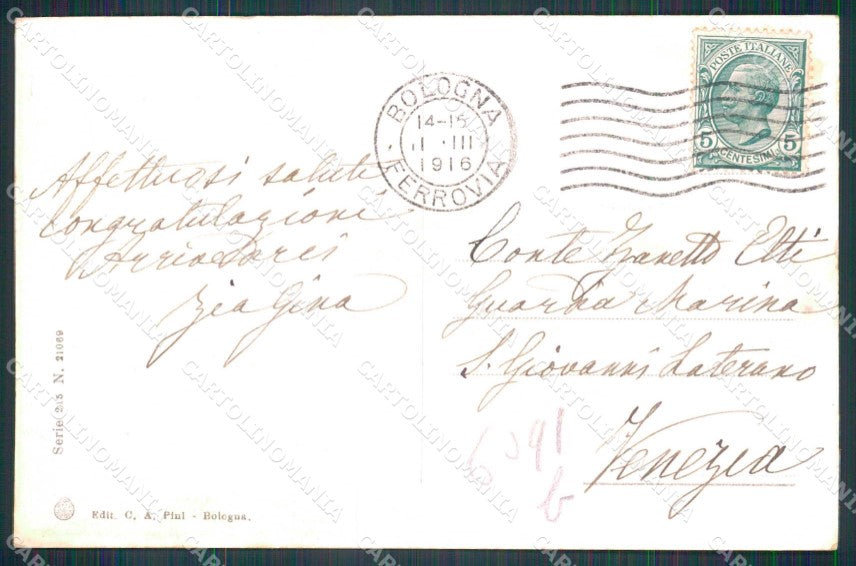 BOLOGNA
14-15
II III
1916
FERROVIA
POSTE ITALIANE
5 5
CENTESIMI
Affettuosi saluti
congratulazioni
Zia Gina
Conte Zanetto Elti
Guardia Marina
S. Giovanni Laterano
Venezia
Serie 215 N. 21069
Edit. C. A. Pini - Bologna.
CARTOLINOMANIA